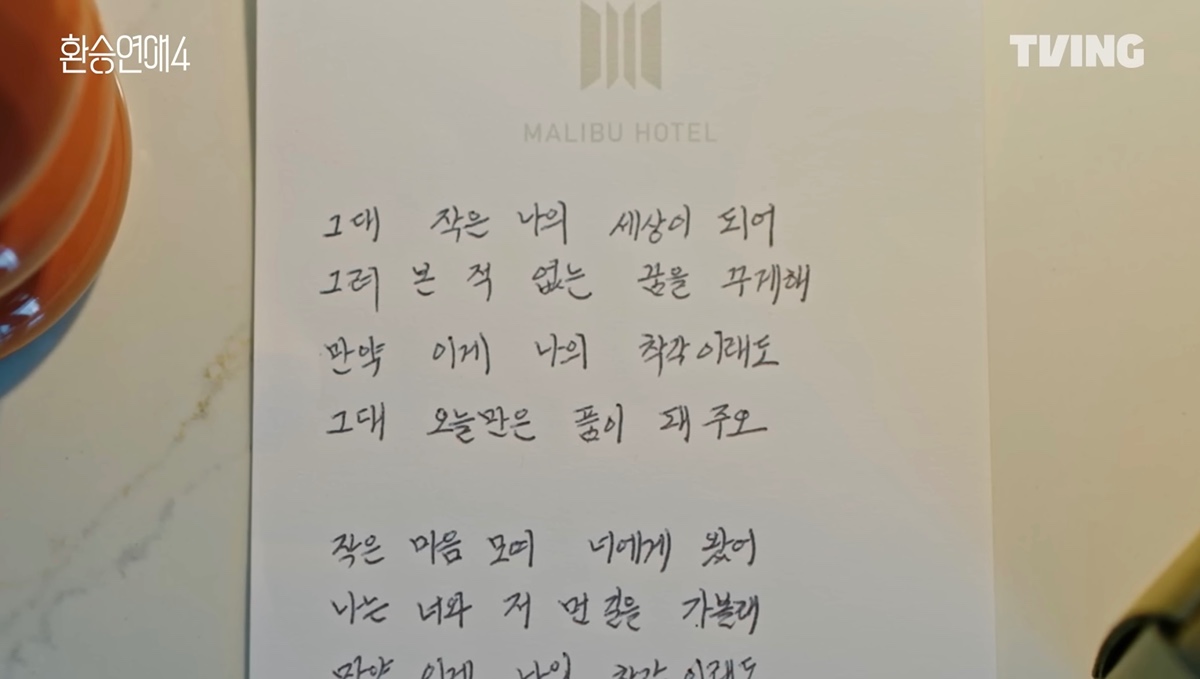 환승연애4
TVING
MALIBU HOTEL
그대 작은 나의 세상이 되어
그려 본 적 없는 꿈을 꾸게해
만약 이게 나의 착각이래도
그대 오늘만은 품이 돼 주오
작은 마음 모여 너에게 왔어
나는 너와 저 먼 길을 가볼래
만약 이게 나의 착각이래도